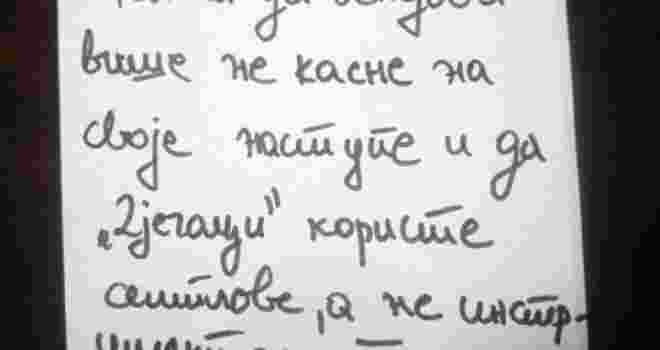 да
више не касне на
своје наступе и да
користе
семплове, а не инстр-